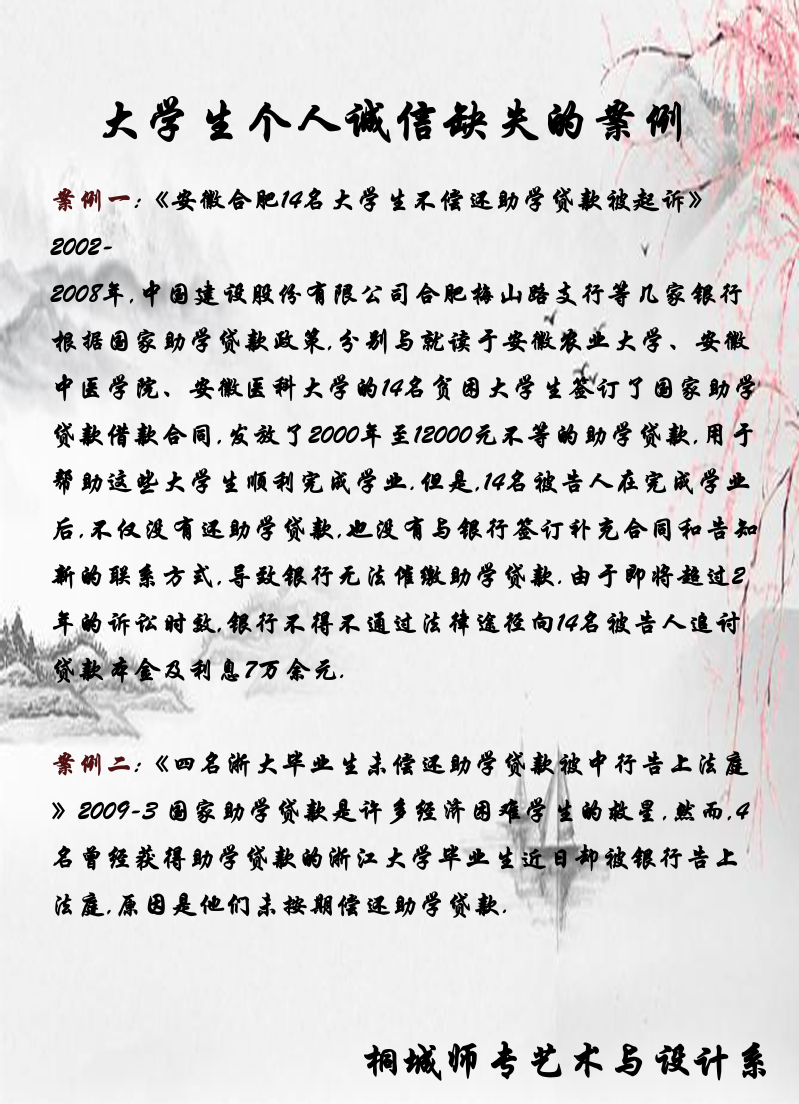 大学生个人诚信缺失的案例
案例一:《安徽合肥14名大学生不偿还助学贷款被起诉》
2002-
2008年,中国建设股份有限公司合肥梅山路支行等几家银行
根据国家助学贷款政策,分别与就读于安徽农业大学、安徽
中医学院、安徽医科大学的14名贫困大学生签订了国家助学
贷款借款合同,发放了2000年至12000元不等的助学贷款,用于
帮助这些大学生顺利完成学业.但是,14名被告人在完成学业
后,不仅没有还助学贷款,也没有与银行签订补充合同和告知
新的联系方式,导致银行无法催缴助学贷款.由于即将超过2
年的诉讼时效,银行不得不通过法律途径向14名被告人追讨
贷款本金及利息7万余元.
案例二:《四名浙大毕业生未偿还助学贷款被中行告上法庭
》2009-3 国家助学贷款是许多经济困难学生的救星,然而,4
名曾经获得助学贷款的浙江大学毕业生近日却被银行告上
法庭,原因是他们未按期偿还助学贷款.
桐城师专艺术与设计系